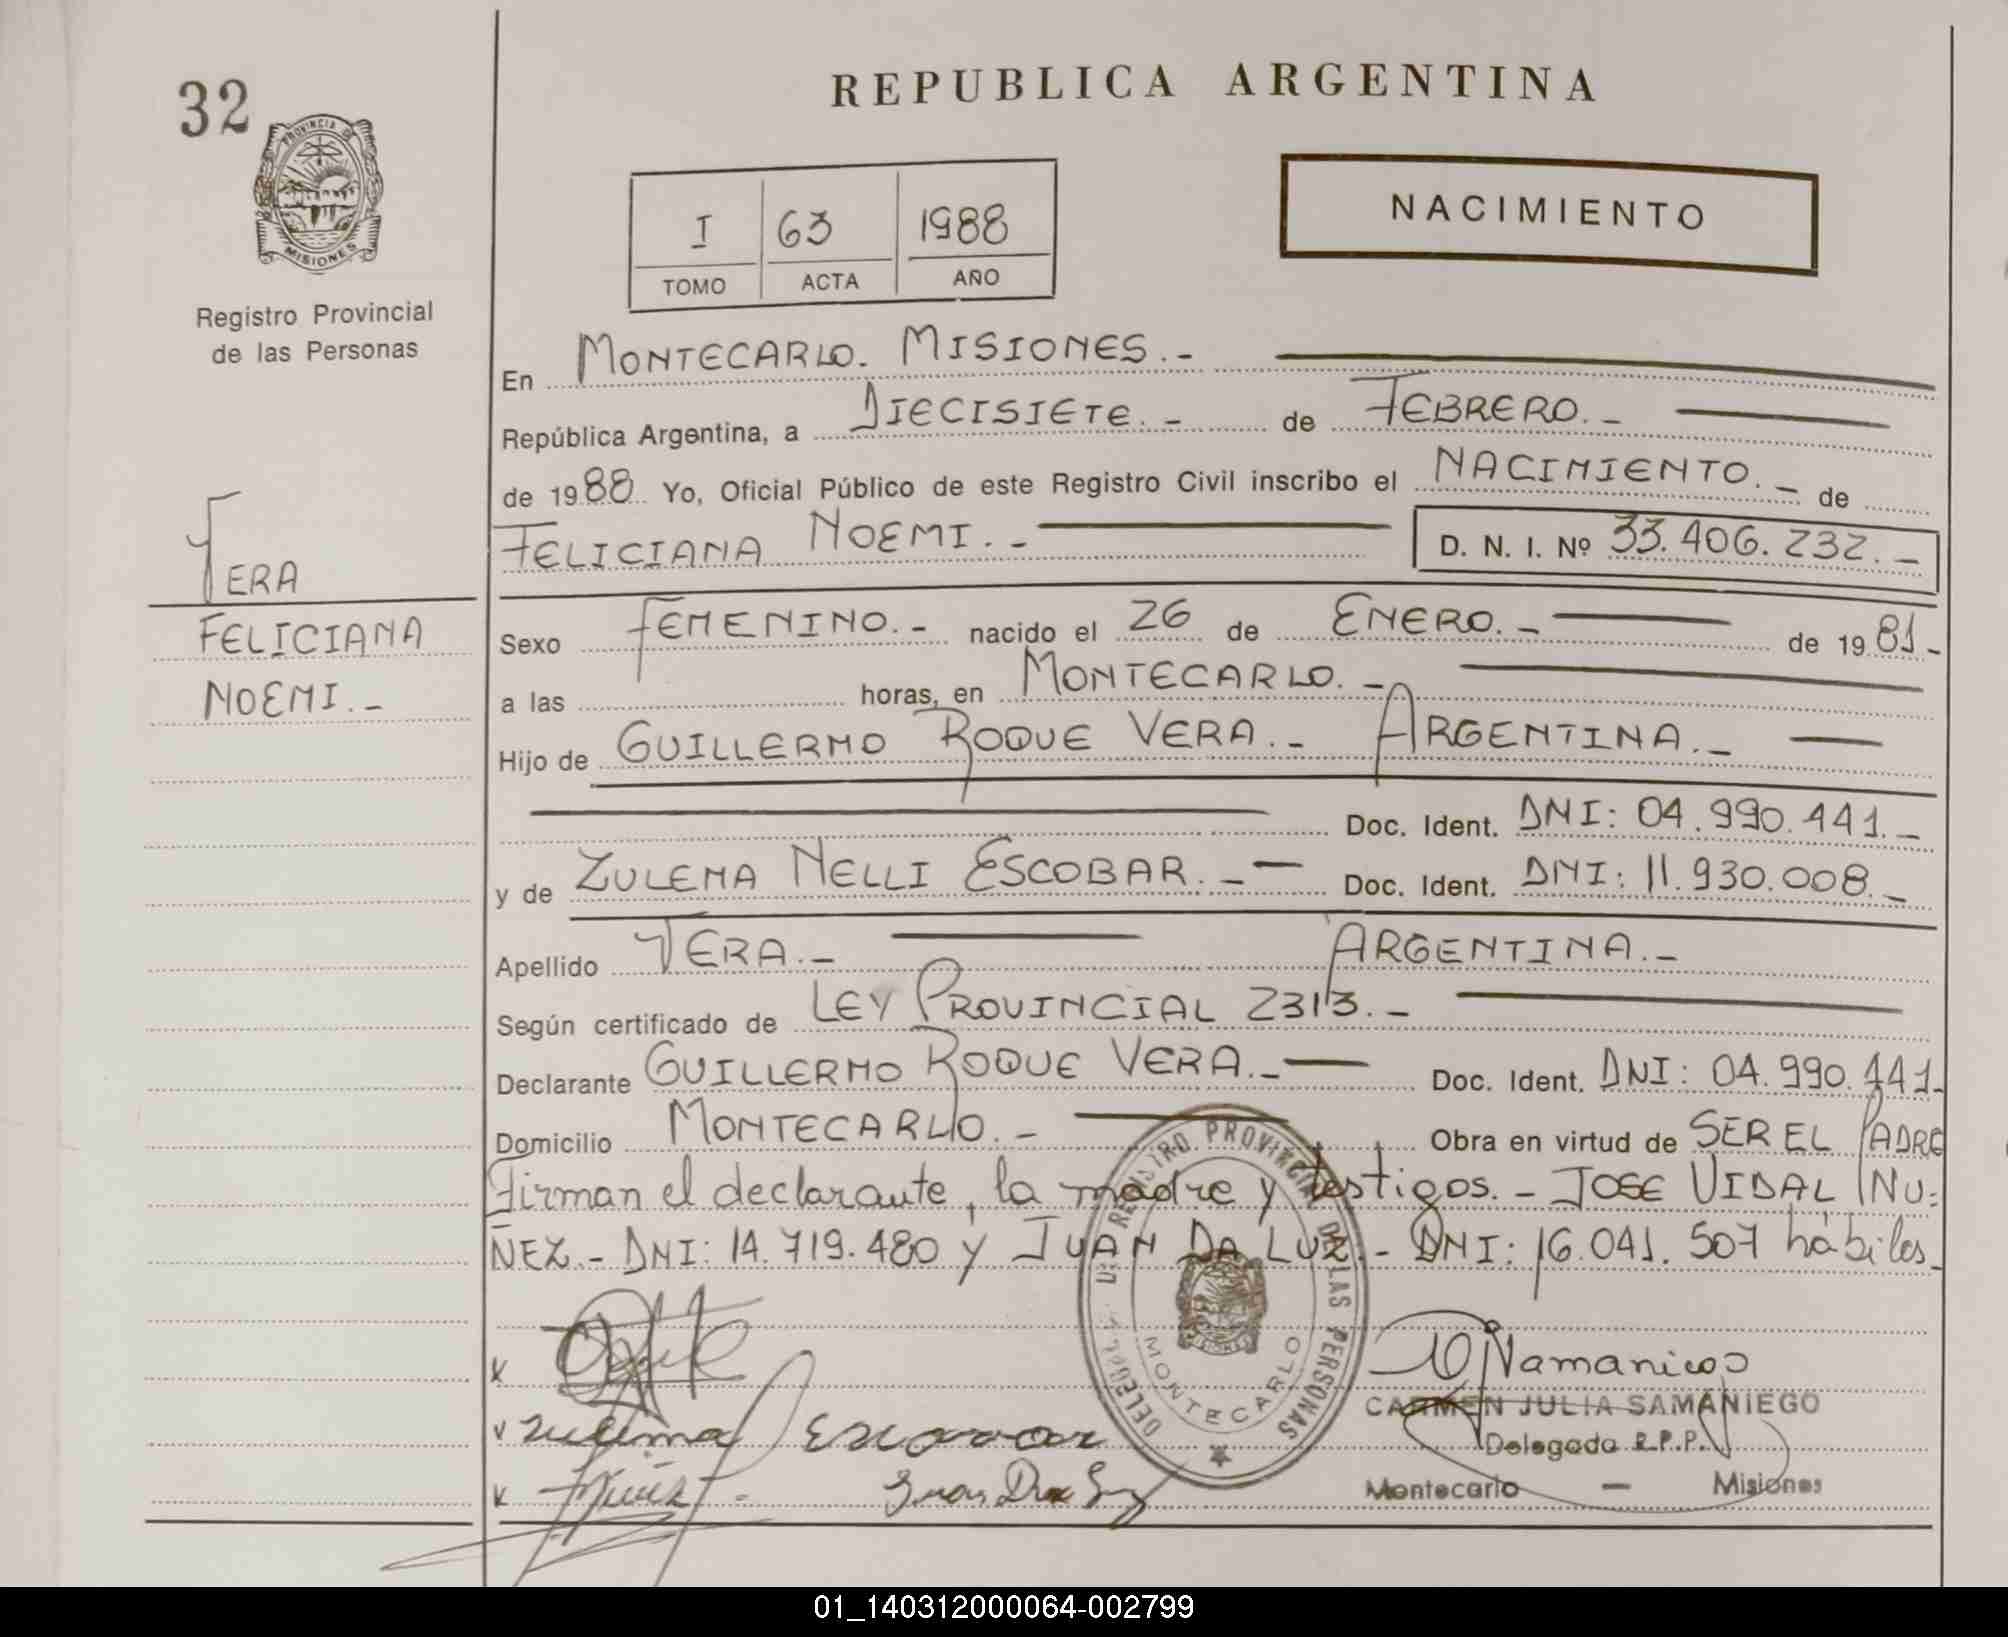 32
REPUBLICA ARGENTINA
PROVINCIA DE
MISIONES
Registro Provincial
de las Personas
I 63 1988
TOMO ACTA AÑO
NACIMIENTO
En MONTECARLO. MISIONES.-
República Argentina, a DIECISIETE.- de FEBRERO.-
de 1988 Yo, Oficial Público de este Registro Civil inscribo el NACIMIENTO.- de
FELICIANA NOEMI.- D. N. I. Nº 33.406.232.-
VERA
FELICIANA
NOEMI.-
Sexo FEMENINO.- nacido el 26 de ENERO.- de 1981.-
a las horas, en MONTECARLO.-
Hijo de GUILLERMO ROQUE VERA.- ARGENTINA.-
Doc. Ident. DNI: 04.990.441.-
y de ZULEMA NELLI ESCOBAR.- Doc. Ident. DNI: 11.930.008.-
Apellido VERA.- ARGENTINA.-
Según certificado de LEY PROVINCIAL 2313.-
Declarante GUILLERMO ROQUE VERA.- Doc. Ident. DNI: 04.990.441.-
Domicilio MONTECARLO.- Obra en virtud de SER EL PADRE
Firman el declarante, la madre y testigos.- JOSE VIDAL NU-
ÑEZ.- DNI: 14.719.480 y JUAN DA LUZ.- DNI: 16.041.507 hábiles.
REGISTRO PROVINCIAL DE LAS PERSONAS
MONTECARLO
Zulema Escovar
Juan Da Luz
CARMEN JULIA SAMANIEGO
Delegada R.P.P.
Montecarlo - Misiones
01_140312000064-002799